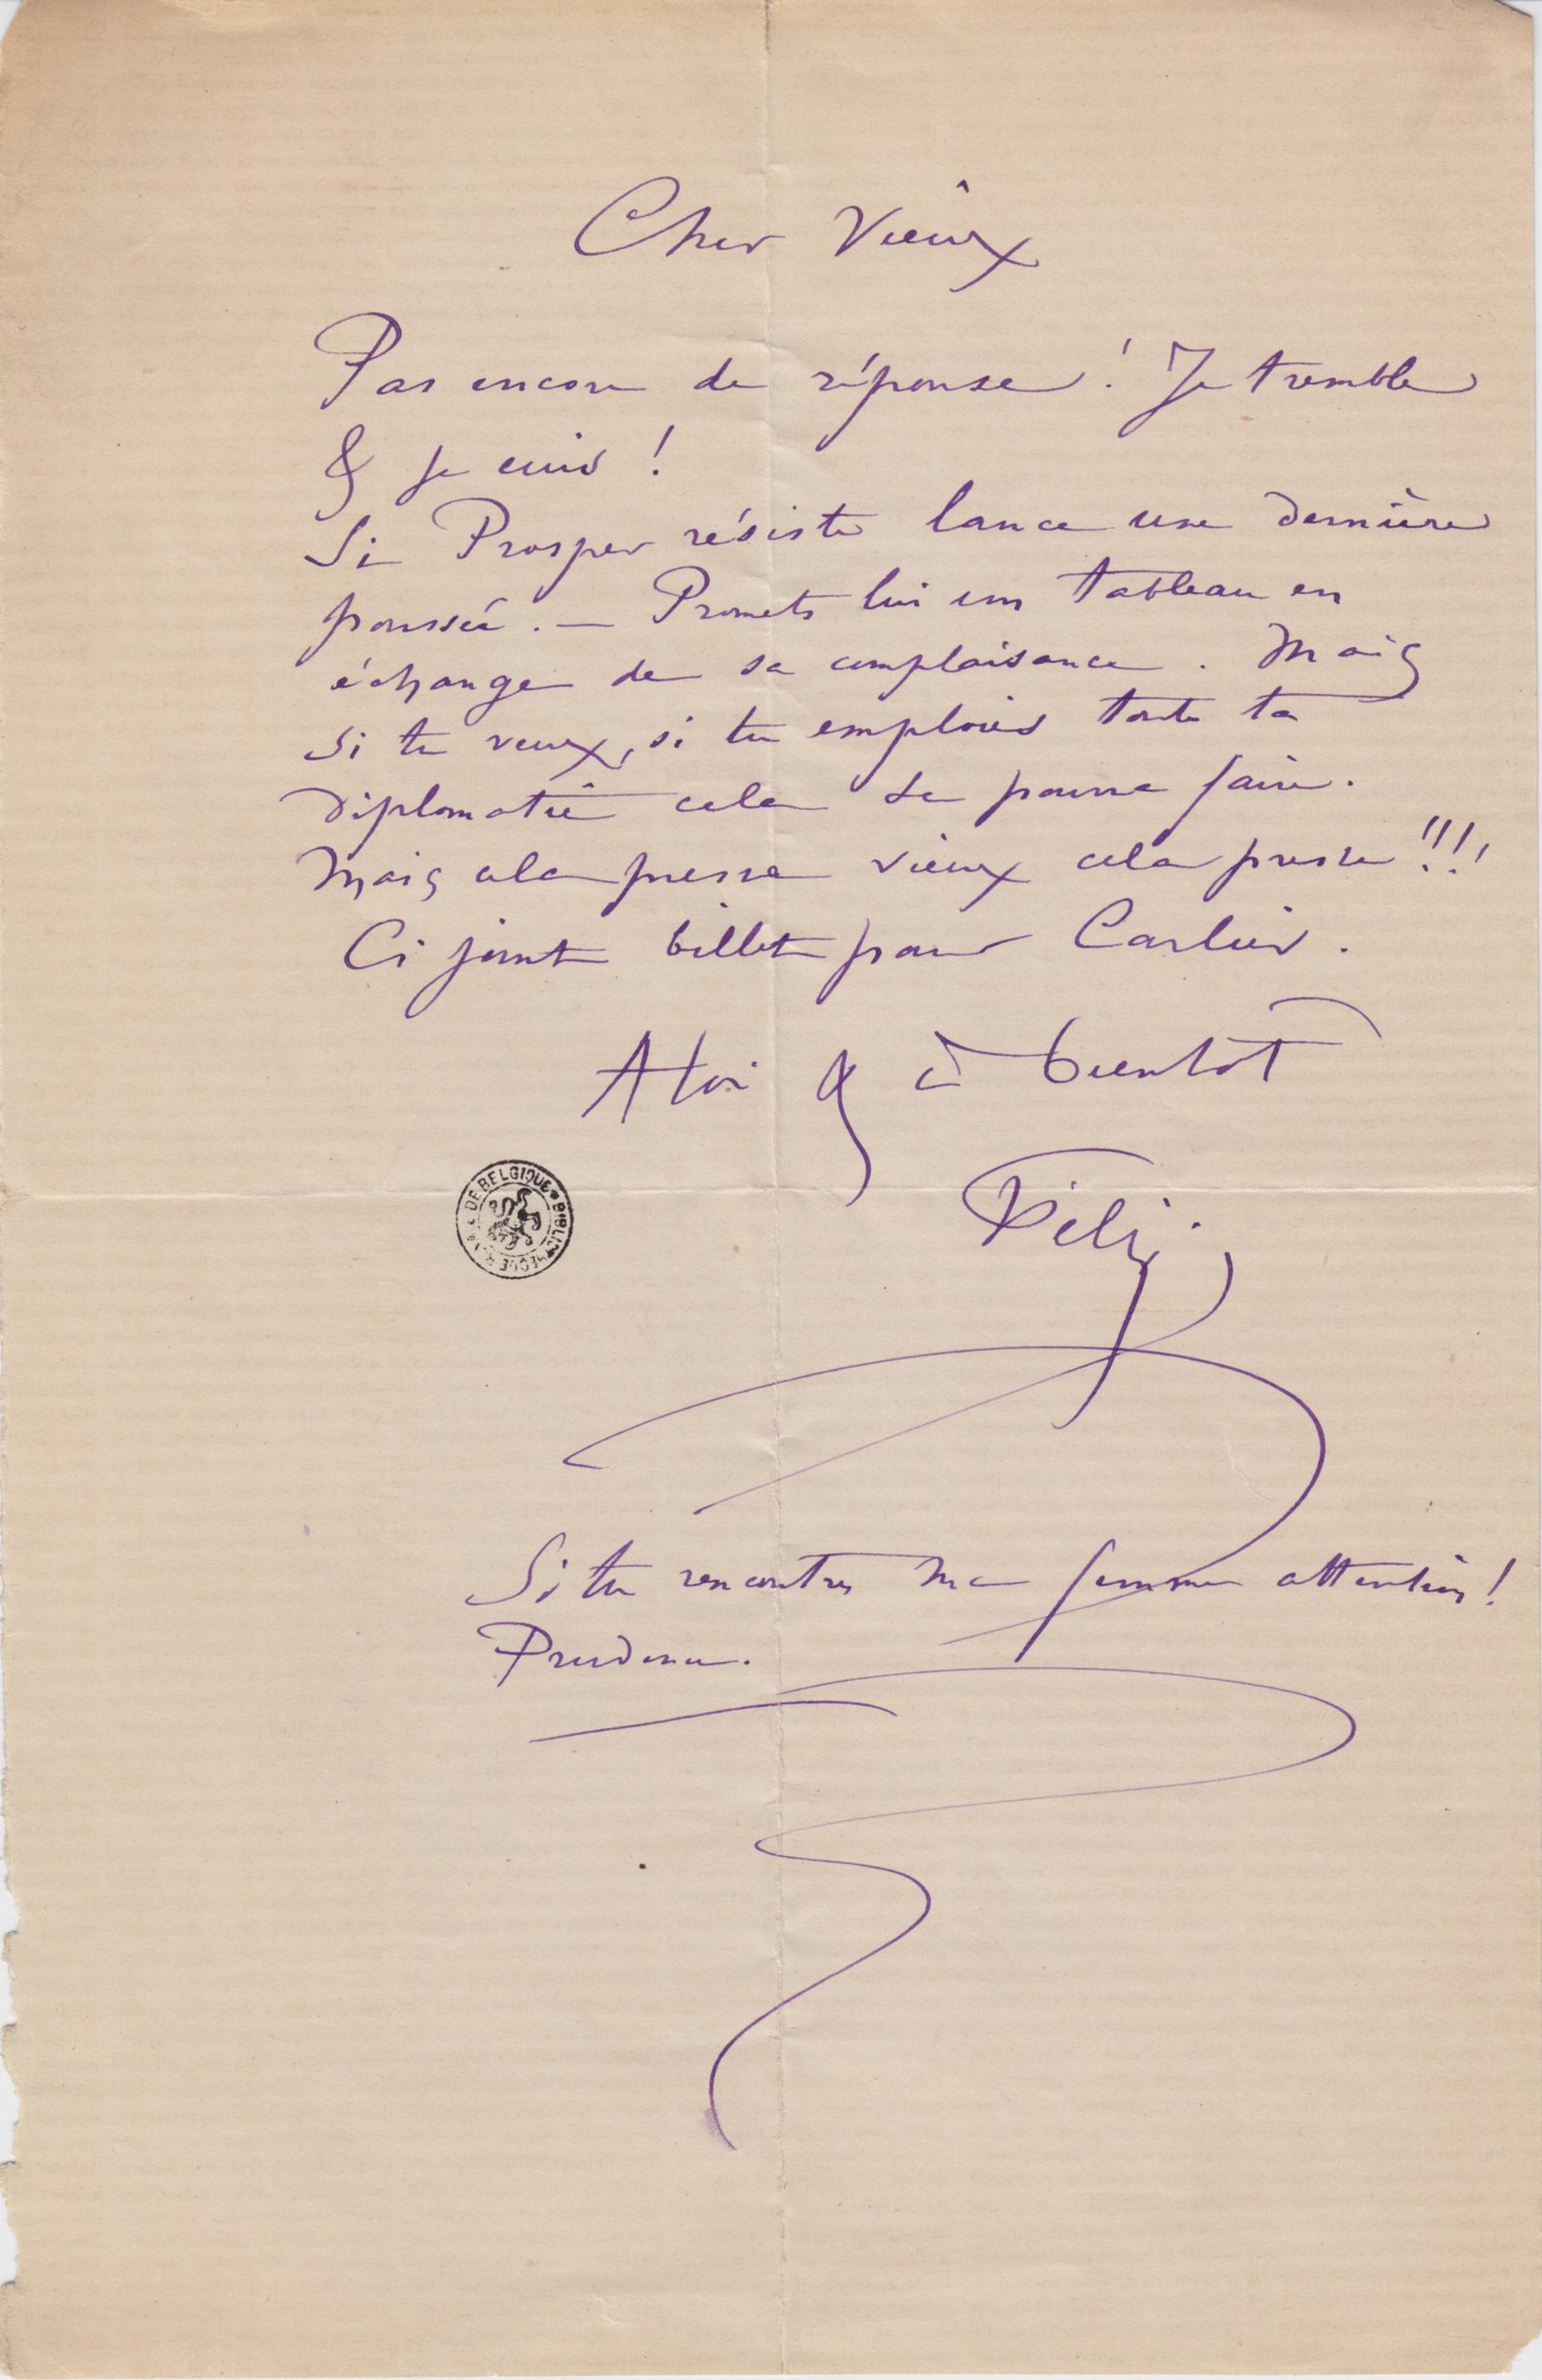 Cher Vieux
Pas encore de réponse ! Je tremble
& je cuis !
Si Prosper résiste lance une dernière
poussée. — Promets lui un tableau en
échange de sa complaisance. Mais
si tu veux, si tu emploies toute ta
diplomatie cela se pourra faire.
Mais cela presse vieux cela presse !!!!
Ci joint billet pour Carlier.
A toi & à bientôt
Féli
DE BELGIQUE * BIBLIOTHEQUE
Si tu rencontres ma femme attention !
Prudence.